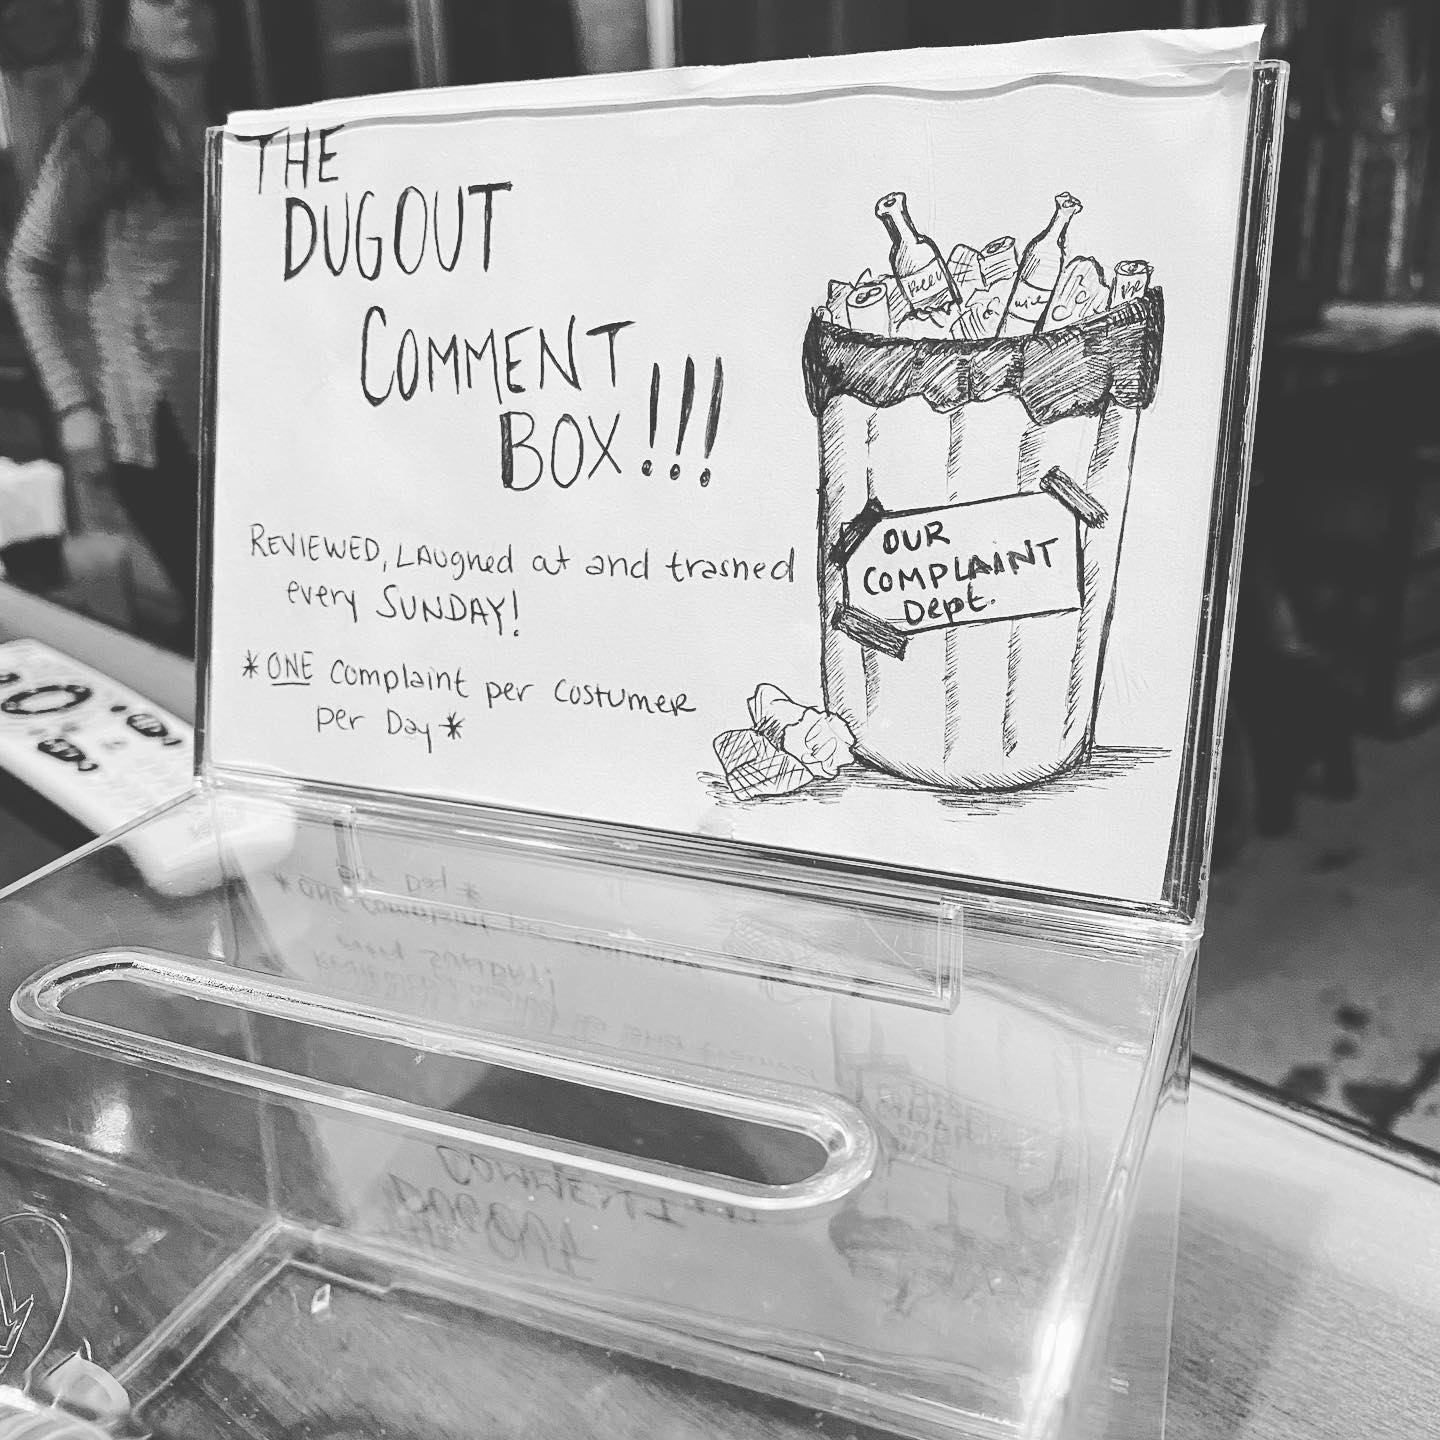 THE
DUGOUT
COMMENT
BOX!!!
REVIEWED, LAughed at and trashed
every SUNDAY!
*ONE Complaint per Costumer
per Day*
Beer
wine
OUR
COMPLAINT
Dept.